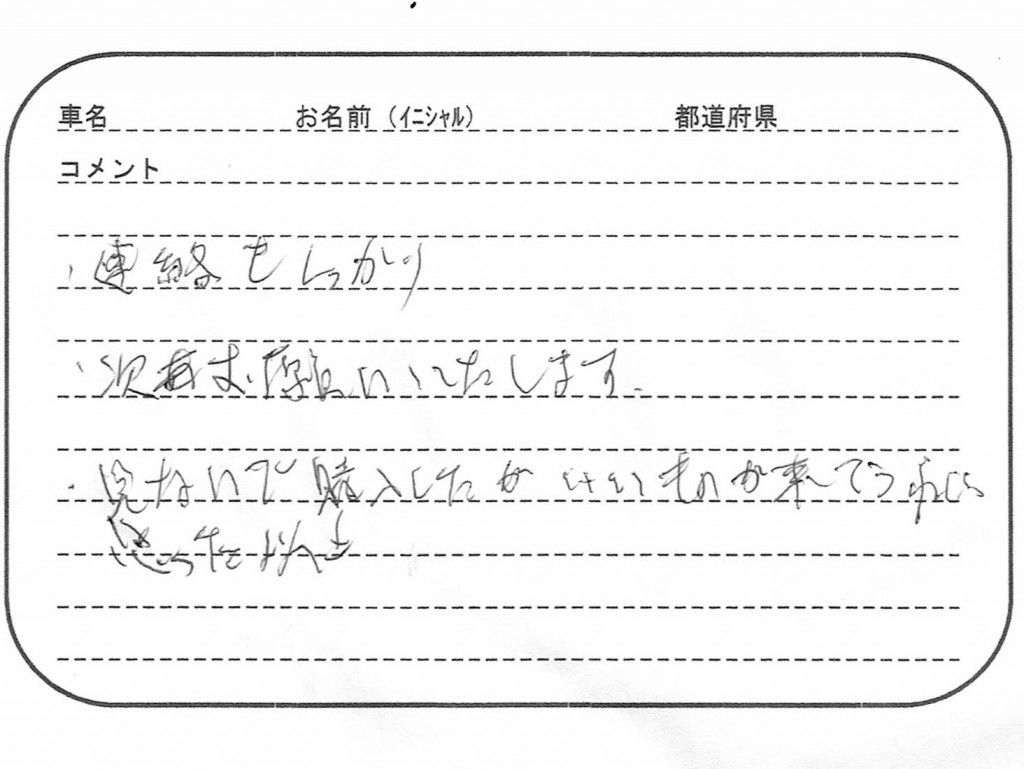 車名 お名前（ｲﾆｼｬﾙ） 都道府県
コメント
・連絡もしっかり
・次每お願いいたします.
・見ないで購入したが いいものが来てうれしい
思った以上